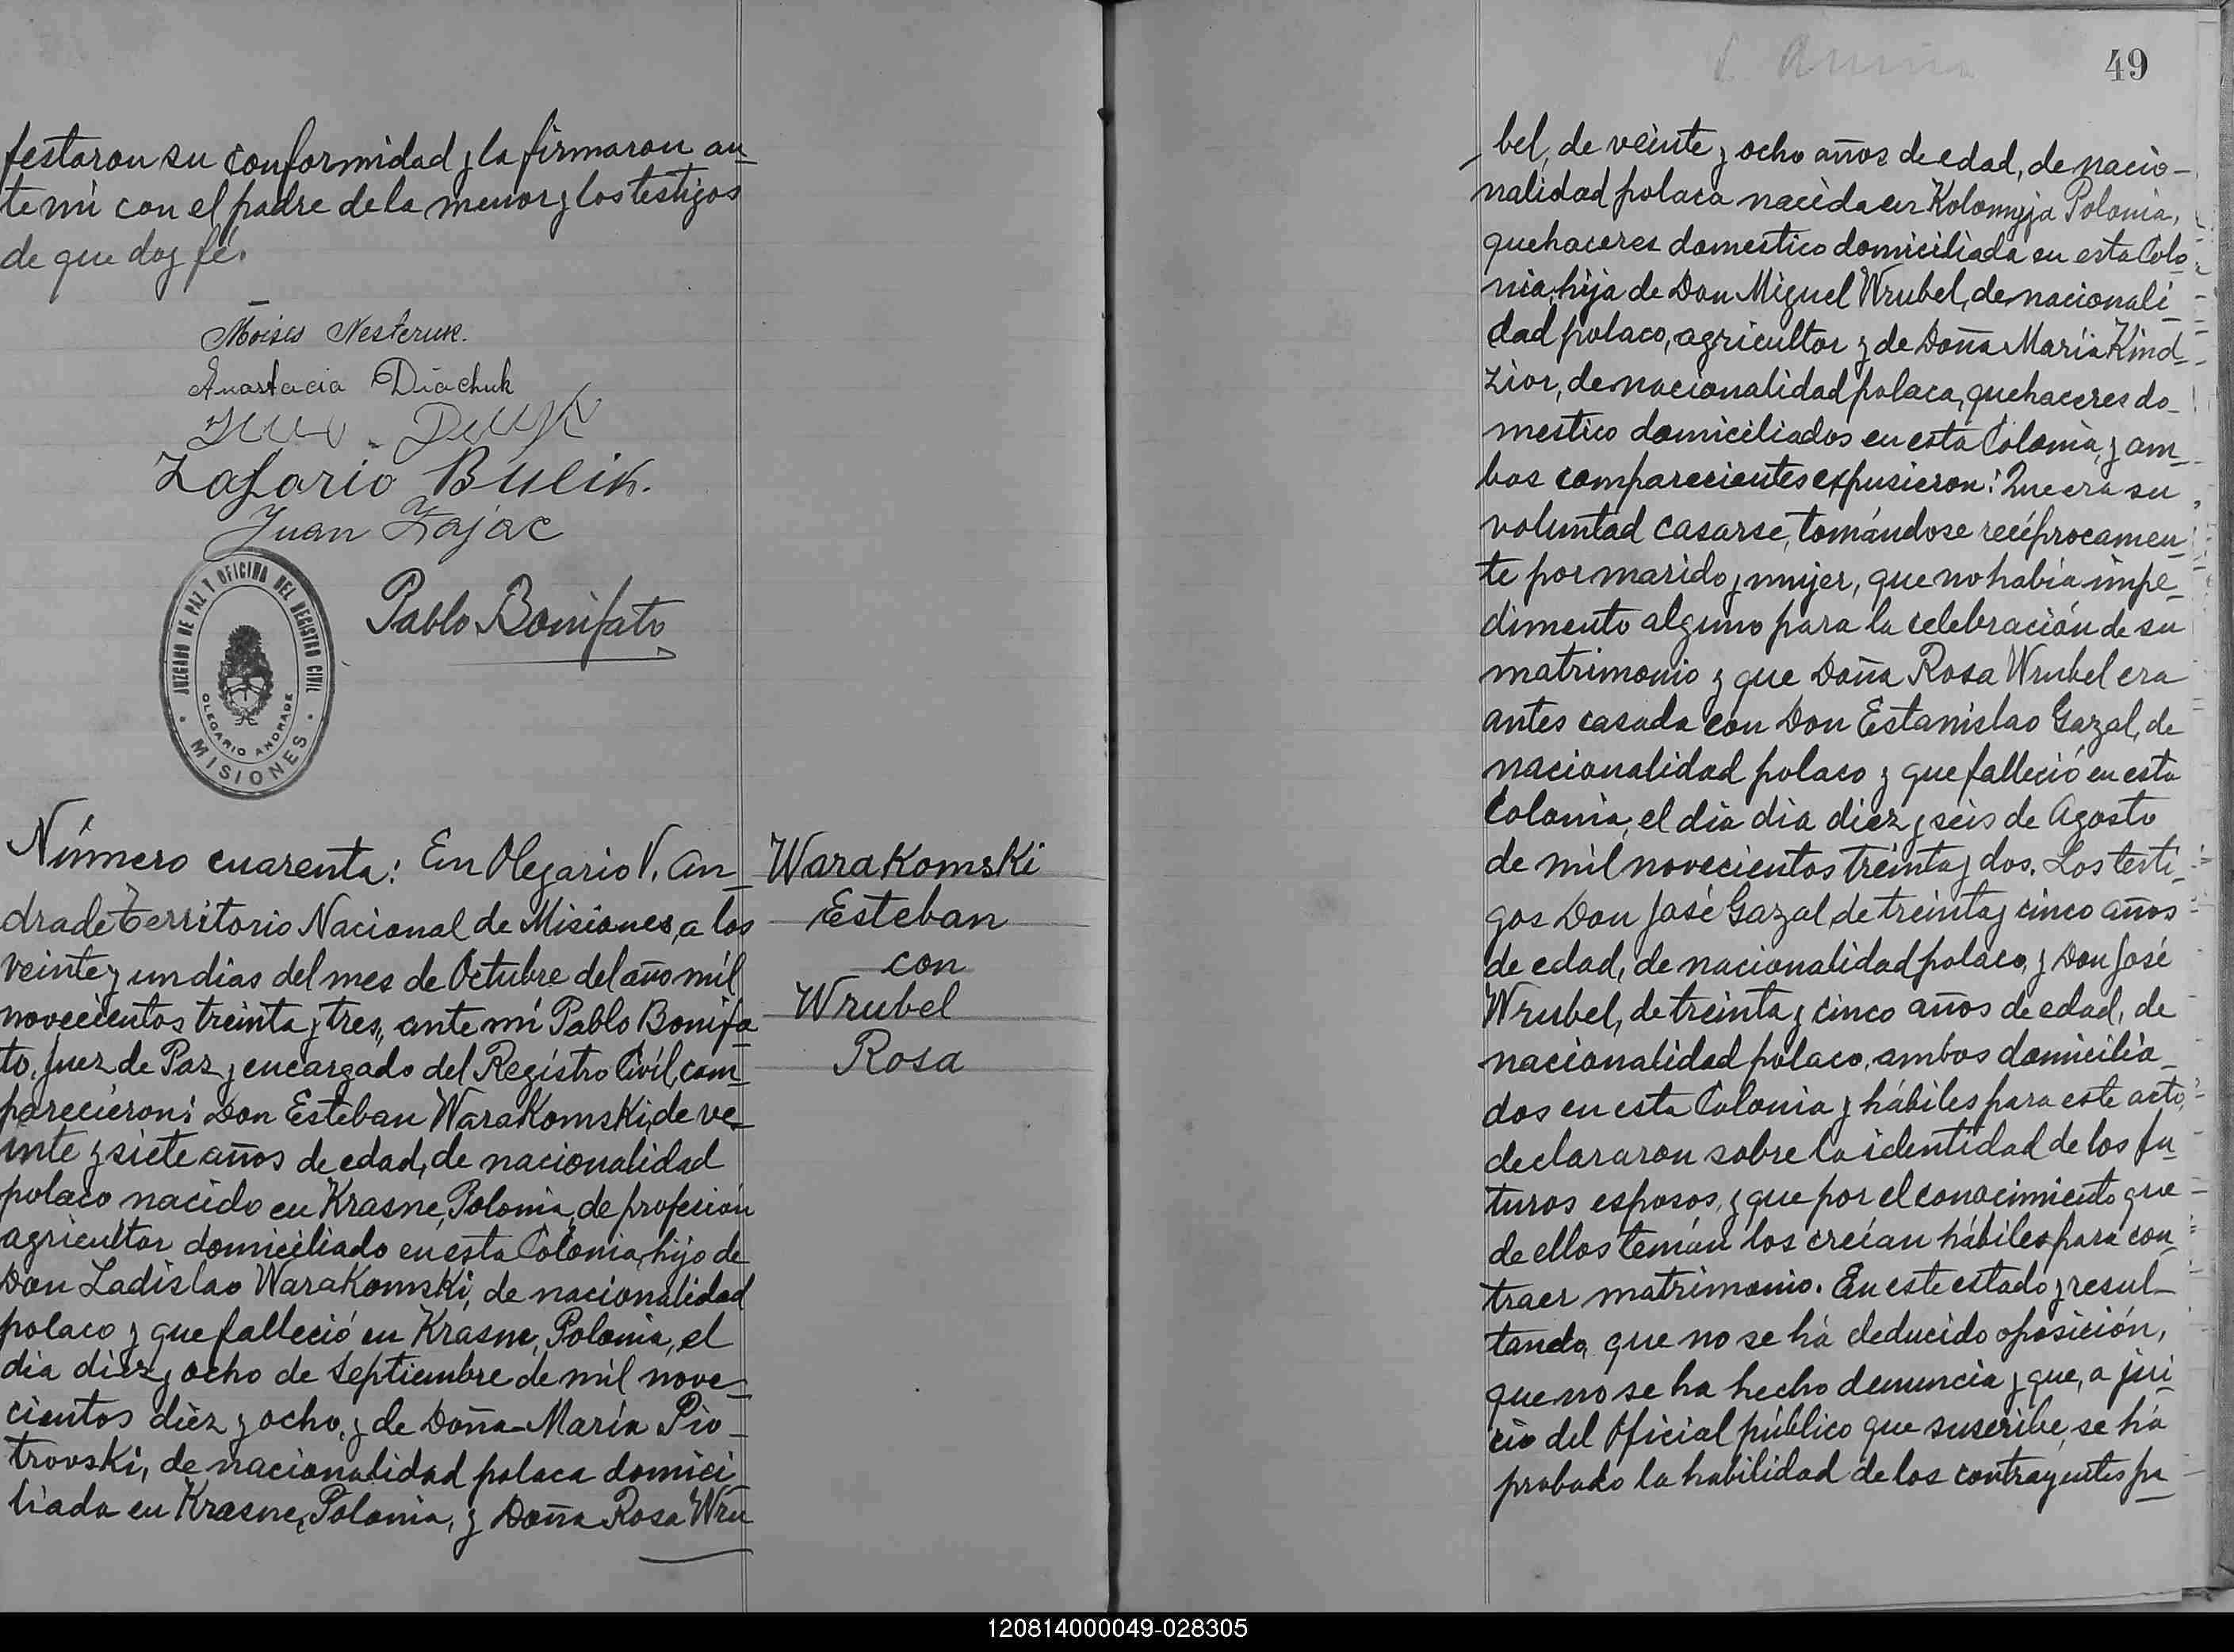 festaron su conformidad y la firmaron an_
te mí con el padre de la menor y los testigos
de que doy fé.
Moises Nesteruk.
Anastacia Diachuk
Zalario Bulik.
Juan Zajac
Pablo Bonifato
JUZGADO DE PAZ Y OFICINA DEL REGISTRO CIVIL
OLEGARIO ANDRADE
· MISIONES ·
Número cuarenta: En Olegario V. An_
drade Territorio Nacional de Misiones, a los
veinte y un dias del mes de Octubre del año mil
novecientos treinta y tres, ante mí Pablo Bonifa_
to, Juez de Paz y encargado del Registro Civil, com_
parecieron: Don Esteban Warakomski, de ve_
inte y siete años de edad, de nacionalidad
polaco nacido en Krasne, Polonia, de profesión
agricultor domiciliado en esta Colonia, hijo de
Don Ladislao Warakomski, de nacionalidad
polaco y que falleció en Krasne, Polonia, el
dia diez y ocho de Septiembre de mil nove_
cientos diez y ocho, y de Doña María Pio_
trovski, de nacionalidad polaca domici_
liada en Krasne, Polonia, y Doña Rosa Wru
Warakomski
Esteban
con
Wrubel
Rosa
49
bel, de veinte y ocho años de edad, de nacio-
nalidad polaca nacida en Kolomyja Polonia,
quehaceres domestico domiciliada en esta Colo_
nia, hija de Don Miguel Wrubel, de nacionali_
dad polaco, agricultor y de Doña María Kind_
zior, de nacionalidad polaca, quehaceres do_
mestico domiciliados en esta Colonia, y am_
bos comparecientes expusieron: Que era su
voluntad casarse, tomándose recíprocamen_
te por marido y mujer, que no había impe_
dimento alguno para la celebración de su
matrimonio y que Doña Rosa Wrubel era
antes casada con Don Estanislao Gazal, de
nacionalidad polaco y que falleció en esta
Colonia, el dia dia diez y seis de Agosto
de mil novecientos treinta y dos. Los testi_
gos Don José Gazal, de treinta y cinco años
de edad, de nacionalidad polaco, y Don José
Wrubel, de treinta y cinco años de edad, de
nacionalidad polaco, ambos domicilia_
dos en esta Colonia y hábiles para este acto,
declararon sobre la identidad de los fu_
turos esposos, y que por el conocimiento que
de ellos tenían los creían hábiles para con_
traer matrimonio. En este estado y resul_
tando, que no se ha deducido oposición,
que no se ha hecho denuncia y que, a jui_
cio del Oficial público que suscribe, se ha
probado la habilidad de los contrayentes pa_
120814000049-028305